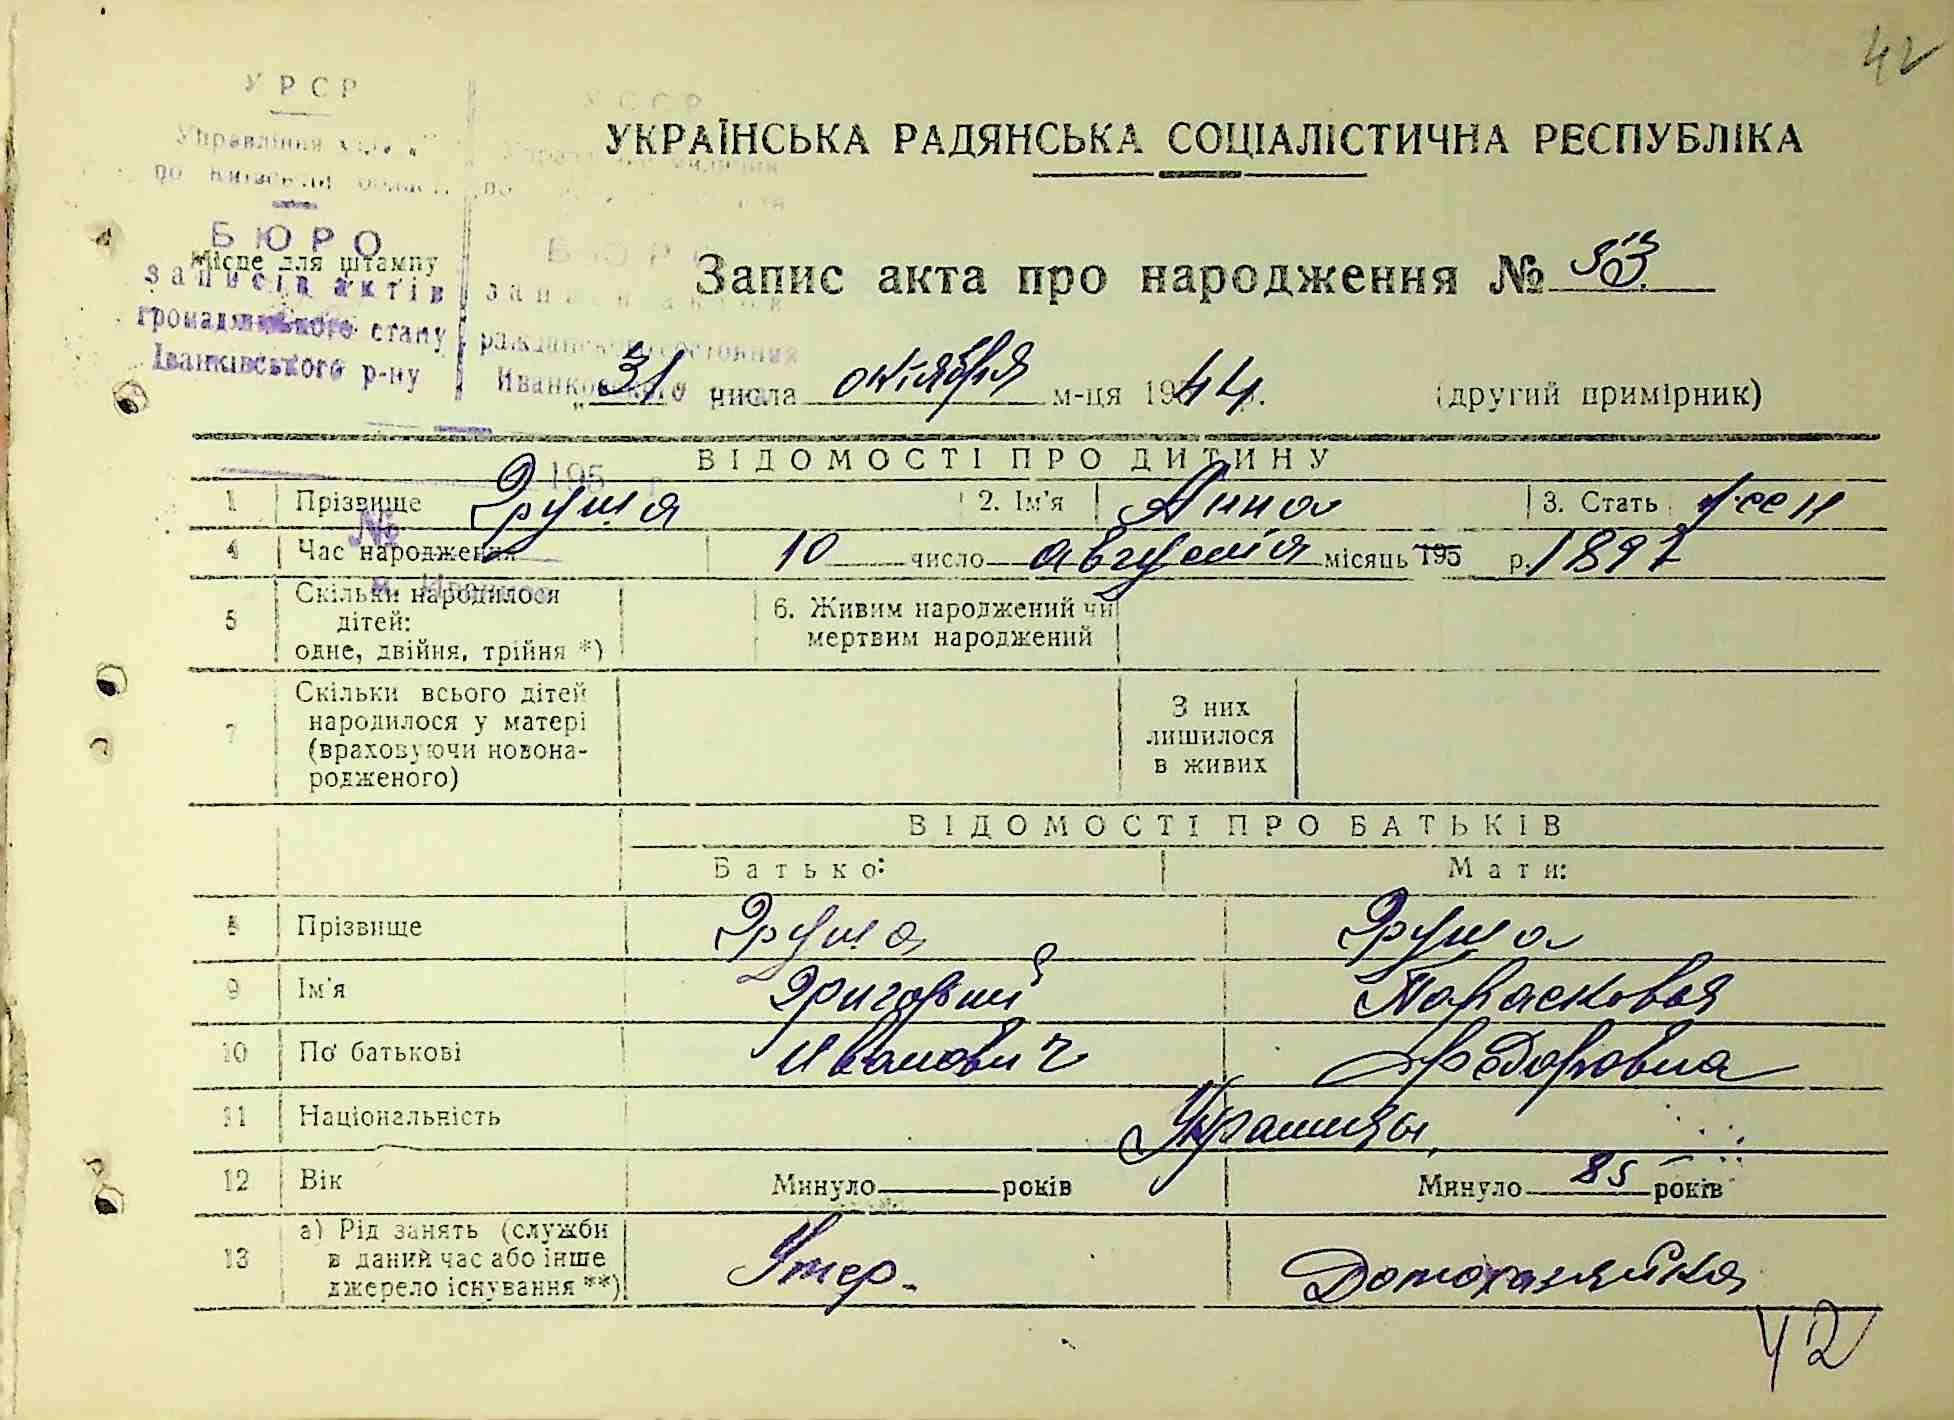 42
УРСР
УКРАЇНСЬКА РАДЯНСЬКА СОЦІАЛІСТИЧНА РЕСПУБЛІКА
Управління
по Київській області
БЮРО
Місце для штампу
записів актів
громадянського стану
Іванківського р-ну
Запис акта про народження № 53
„31" числа октября м-ця 1944 р. (другий примірник)
ВІДОМОСТІ ПРО ДИТИНУ
195
1 Прізвище Груша 2. Ім'я Анна 3. Стать жен
№
4 Час народження 10 число августа місяць 195 р. 1897
5 Скільки народилося дітей: одне, двійня, трійня *) 6. Живим народжений чи мертвим народжений
7 Скільки всього дітей народилося у матері (враховуючи новонародженого) З них лишилося в живих
ВІДОМОСТІ ПРО БАТЬКІВ
Батько: Мати:
8 Прізвище Груша Груша
9 Ім'я Григорий Парасковья
10 По батькові Иванович Федоровна
11 Національність Украинцы
12 Вік Минуло років Минуло 85 років
13 а) Рід занять (служби в даний час або інше джерело існування **) Умер. Домохазяйка
42